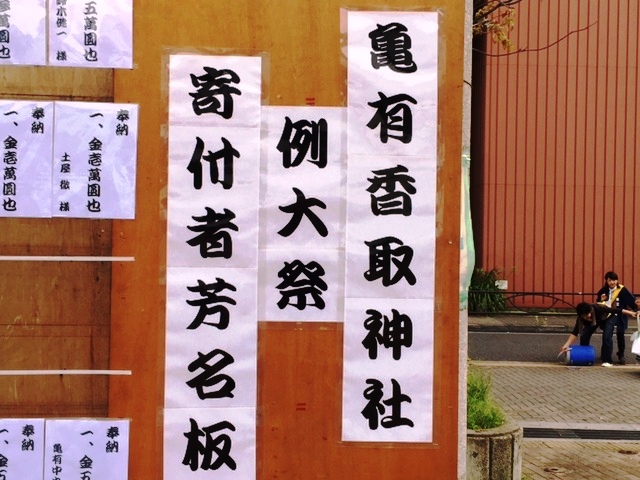 亀有香取神社
例大祭
寄付者芳名板
五萬圓也
鈴木健一 様
奉納
一、金壱萬圓也
土屋 徹 様
奉納
一、金壱萬圓也
奉納
一、金五
亀有中
奉納
一、金五